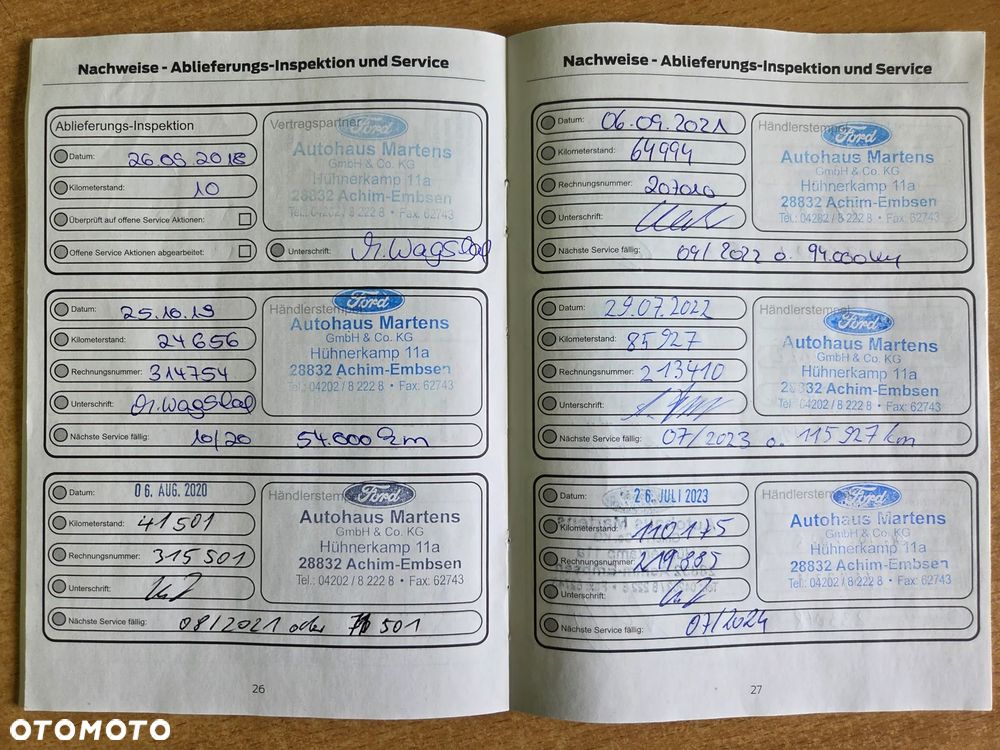 Nachweise - Ablieferungs-Inspektion und Service
Ablieferungs-Inspektion
Datum: 26 09 2018
Kilometerstand: 10
Überprüft auf offene Service Aktionen:
Offene Service Aktionen abgearbeitet:
Vertragspartner
Ford
Autohaus Martens
GmbH & Co. KG
Hühnerkamp 11a
28832 Achim-Embsen
Tel.: 04202 / 8 222 8 • Fax: 62743
Unterschrift:
Datum: 25.10.19
Kilometerstand: 24656
Rechnungsnummer: 314754
Unterschrift:
Nächste Service fällig: 10/20 54.600 km
Händlerstempel
Ford
Autohaus Martens
GmbH & Co. KG
Hühnerkamp 11a
28832 Achim-Embsen
Tel.: 04202 / 8 222 8 • Fax: 62743
Datum: 06. AUG. 2020
Kilometerstand: 41501
Rechnungsnummer: 315501
Unterschrift:
Nächste Service fällig: 08/2021 oder 71 501
Händlerstempel
Ford
Autohaus Martens
GmbH & Co. KG
Hühnerkamp 11a
28832 Achim-Embsen
Tel.: 04202 / 8 222 8 • Fax: 62743
26
Nachweise - Ablieferungs-Inspektion und Service
Datum: 06.09.2021
Kilometerstand: 64994
Rechnungsnummer: 207010
Unterschrift:
Nächste Service fällig: 09/2022 o. 94.000 km
Händlerstempel
Ford
Autohaus Martens
GmbH & Co. KG
Hühnerkamp 11a
28832 Achim-Embsen
Tel.: 04202 / 8 222 8 • Fax: 62743
Datum: 29.07.2022
Kilometerstand: 85927
Rechnungsnummer: 213410
Unterschrift:
Nächste Service fällig: 07/2023 o. 115927 km
Händlerstempel
Ford
Autohaus Martens
GmbH & Co. KG
Hühnerkamp 11a
28832 Achim-Embsen
Tel.: 04202 / 8 222 8 • Fax: 62743
Datum: 26. JULI 2023
Kilometerstand: 110175
Rechnungsnummer: 219885
Unterschrift:
Nächste Service fällig: 07/2024
Händlerstempel
Ford
Autohaus Martens
GmbH & Co. KG
Hühnerkamp 11a
28832 Achim-Embsen
Tel.: 04202 / 8 222 8 • Fax: 62743
27
OTOMOTO